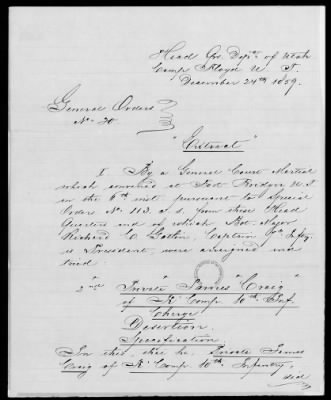 Head Qrs. Dept. of Utah
Camp Floyd U. T.
December 24th 1859.
General Orders
No. 20
"Extract"
I. By a General Court Martial
which convened at Fort Bridger U.T.
on the 6th inst. pursuant to Special
Orders No. 113, c. s. from these Head
Quarters and of which Bvt. Major
Richard C. Gatlin, Captain 7th Infty.
is President, were arraigned and
tried.
2nd Private "James Craig"
of "K" Comp. 10th Inf.
Charge
Desertion.
Specification
In this, that he, Private James
Craig of "K" Comp. 10th Infantry,
did